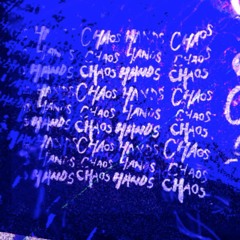 CHAOS HANDS CHAOS
CHAOS HANDS CHAOS
HANDS CHAOS HANDS CHAOS
HANDS CHAOS HANDS CHAOS
HANDS CHAOS HANDS CHAOS
HANDS CHAOS HANDS CHAOS
HANDS CHAOS HANDS CHAOS
HANDS CHAOS HANDS CHAOS